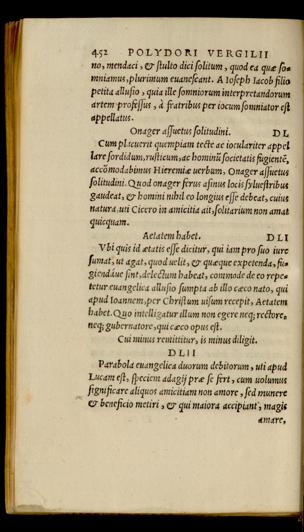 452 POLYDORI VERGILII
no, mendaci, & stulto dici solitum, quod ea quæ so-
mniamus, plurimum euanescant. A Ioseph Iacob filio
petita allusio, quia ille somniorum interpretandorum
artem professus, à fratribus per iocum somniator est
appellatus.
Onager assuetus solitudini. DL
Cum placuerit quempiam tecte ac ioculariter appel
lare sordidum, rusticum, ac hominũ societatis fugientẽ,
accõmodabimus Hieremiæ uerbum, Onager assuetus
solitudini. Quod onager ferus asinus locis syluestribus
gaudeat, & homini nihil eo longius esse debeat, cuius
natura, uti Cicero in amicitia ait, solitarium non amat
quicquam.
Aetatem habet. DLI
Vbi quis id ætatis esse dicitur, qui iam pro suo iure
sumat, ut agat, quod uelit, & quæque expetenda, fu-
giendáue sint, delectum habeat, commode de eo repe-
tetur euangelica allusio sumpta ab illo cæco nato, qui
apud Ioannem, per Christum uisum recepit, Aetatem
habet. Quo intelligatur illum non egere neq; rectore,
neq; gubernatore, qui cæco opus est.
Cui minus remittitur, is minus diligit.
DLII
Parabola euangelica duorum debitorum, uti apud
Lucam est, speciem adagij præ se fert, cum uolumus
significare aliquos amicitiam non amore, sed munere
& beneficio metiri, & qui maiora accipiant, magis
amare,